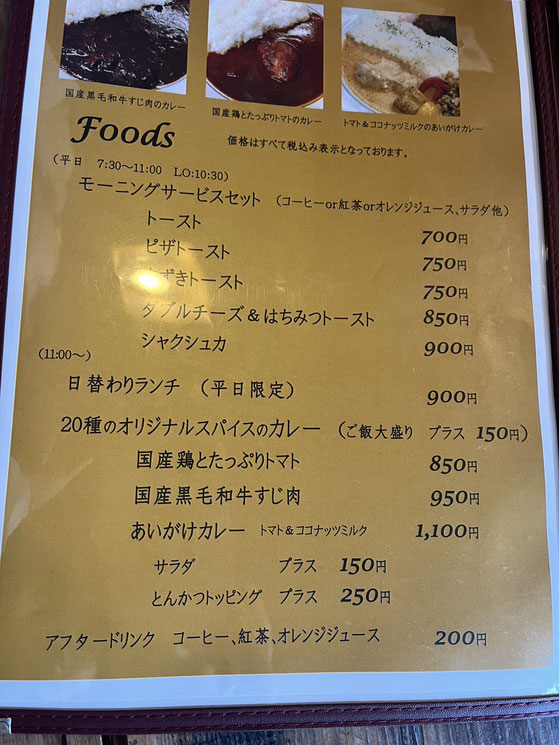 国産黒毛和牛すじ肉のカレー
国産鶏とたっぷりトマトのカレー
トマト＆ココナッツミルクのあいがけカレー
Foods
価格はすべて税込み表示となっております。
（平日　7:30～11:00　LO:10:30）
モーニングサービスセット　（コーヒーor紅茶orオレンジジュース、サラダ他）
トースト　700円
ピザトースト　750円
ずきトースト　750円
ダブルチーズ＆はちみつトースト　850円
シャクシュカ　900円
(11:00～)
日替わりランチ　（平日限定）　900円
20種のオリジナルスパイスのカレー　（ご飯大盛り　プラス　150円）
国産鶏とたっぷりトマト　850円
国産黒毛和牛すじ肉　950円
あいがけカレー　トマト＆ココナッツミルク　1,100円
サラダ　プラス　150円
とんかつトッピング　プラス　250円
アフタードリンク　コーヒー、紅茶、オレンジジュース　200円